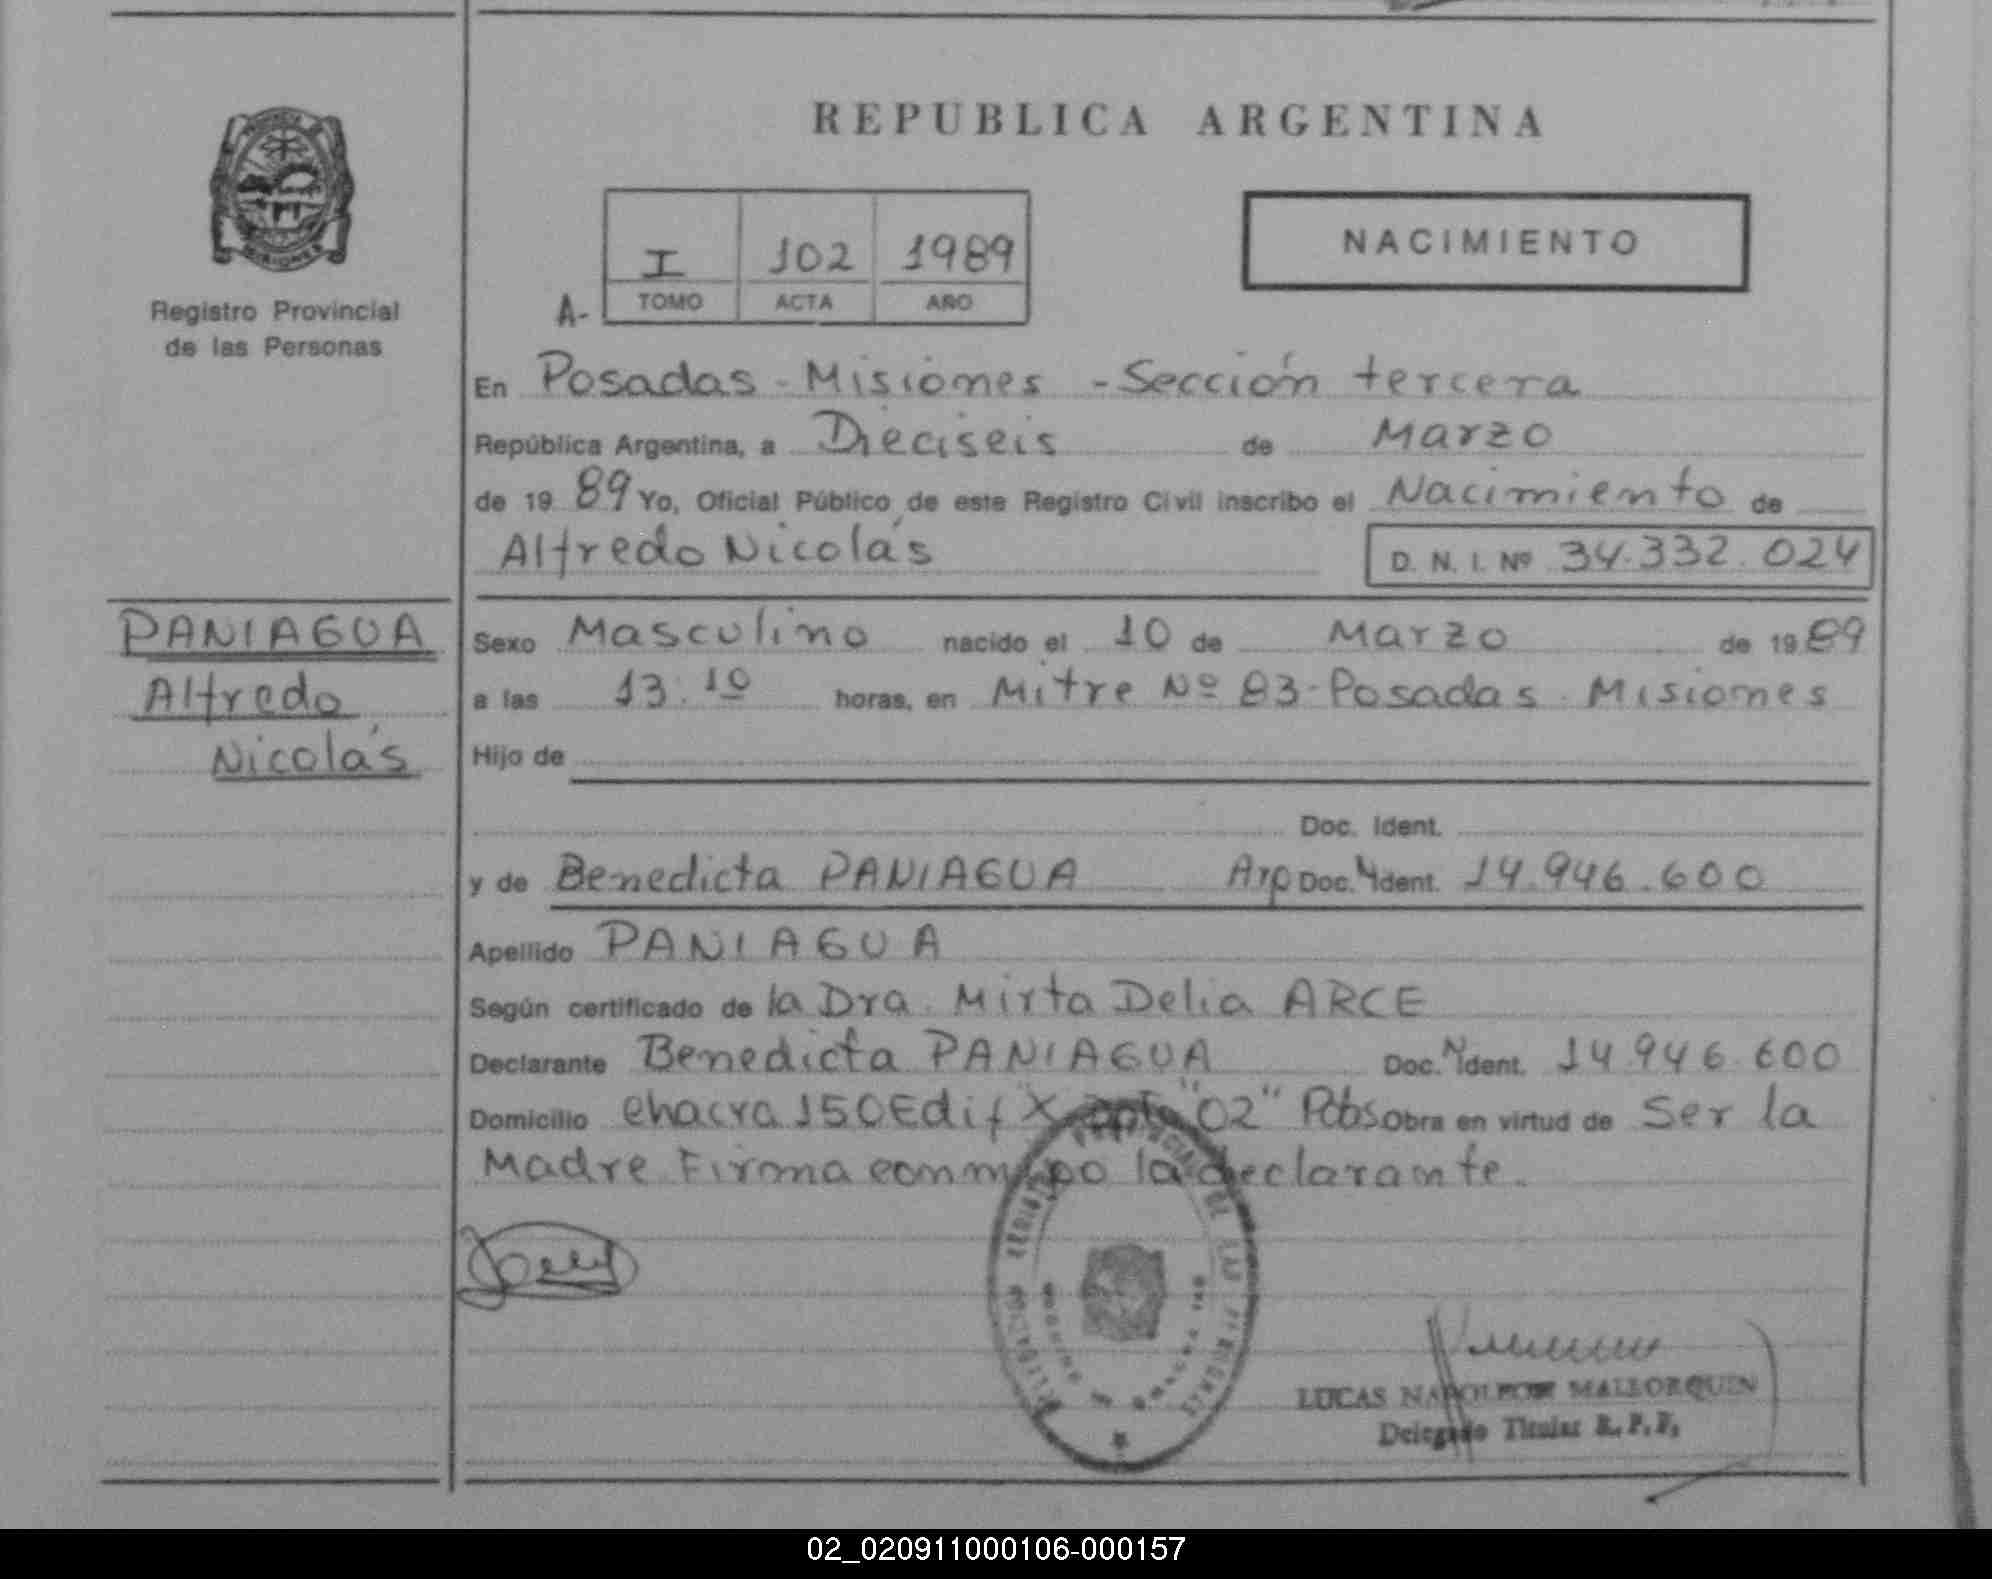 REPUBLICA ARGENTINA
MISIONES
Registro Provincial
de las Personas
A-
I 102 1989
TOMO ACTA AÑO
NACIMIENTO
En Posadas - Misiones - Sección tercera
República Argentina, a Dieciseis de Marzo
de 19 89 Yo, Oficial Público de este Registro Civil inscribo el Nacimiento de
Alfredo Nicolás D. N. I. Nº 34.332.024
PANIAGUA
Alfredo
Nicolás
Sexo Masculino nacido el 10 de Marzo de 19 89
a las 13:10 horas, en Mitre Nº 83-Posadas. Misiones
Hijo de
Doc. Ident.
y de Benedicta PANIAGUA Arg Doc. Ident. 14.946.600
Apellido PANIAGUA
Según certificado de la Dra. Mirta Delia ARCE
Declarante Benedicta PANIAGUA Doc. Ident. 14.946.600
Domicilio Chacra 150 Edif X "02" Obra en virtud de Ser la
Madre Firma conmigo la declarante.
LUCAS NAPOLEON MALLORQUIN
Delegado Titular R. P. P.
02_020911000106-000157